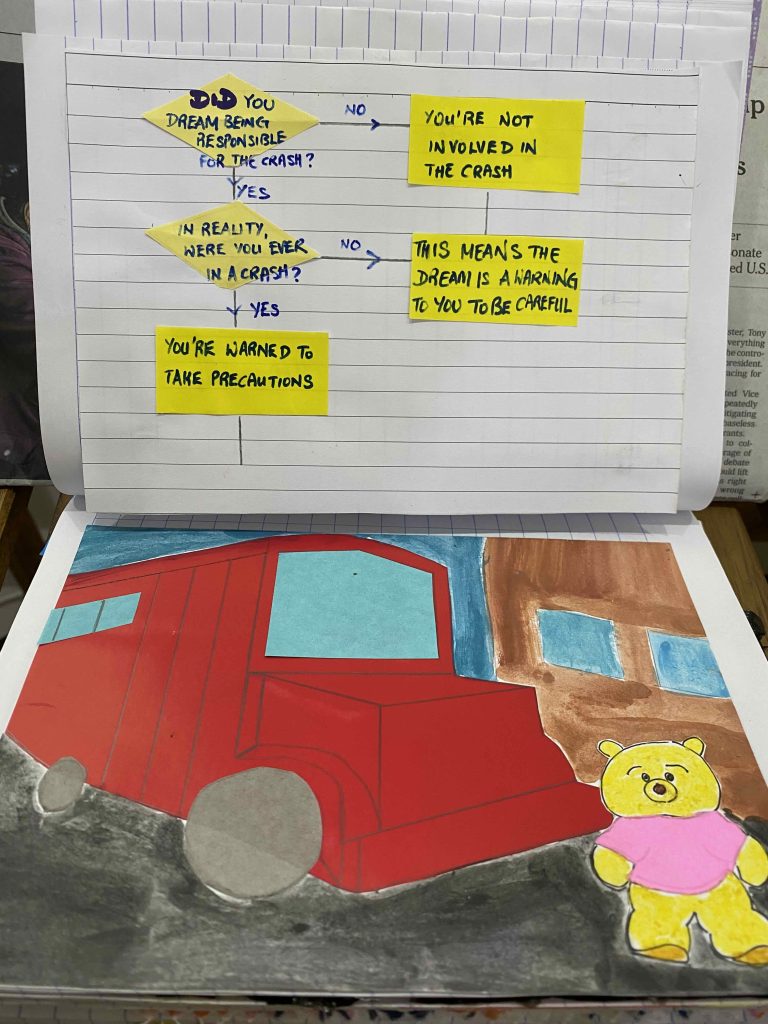 DID YOU
DREAM BEING
RESPONSIBLE
FOR THE CRASH?
NO
YOU'RE NOT
INVOLVED IN
THE CRASH
YES
IN REALITY,
WERE YOU EVER
IN A CRASH?
NO
THIS MEANS THE
DREAM IS A WARNING
TO YOU TO BE CAREFUL
YES
YOU'RE WARNED TO
TAKE PRECAUTIONS
ed U.S.
ster, Tony
verything
he contro-
president.
acing for
ted Vice
peatedly
itigating
baseless
rants.
to col-
rage of
debate
ould lift
a right
wrong